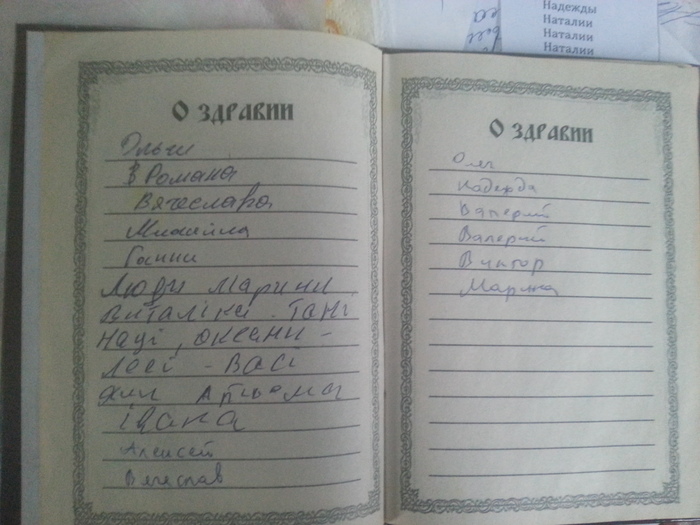 Надежды
Наталии
Наталии
Наталии
О ЗДРАВИИ
Ольги
Романа
Вячеслава
Михайла
Ганни
Люди Марини
Виталіка. Тані
Наді, Оксани -
Лесі - Васі
Артьома
Івана
Алексей
Вячеслав
О ЗДРАВИИ
Олег
Надежда
Валерий
Валерий
Виктор
Марина